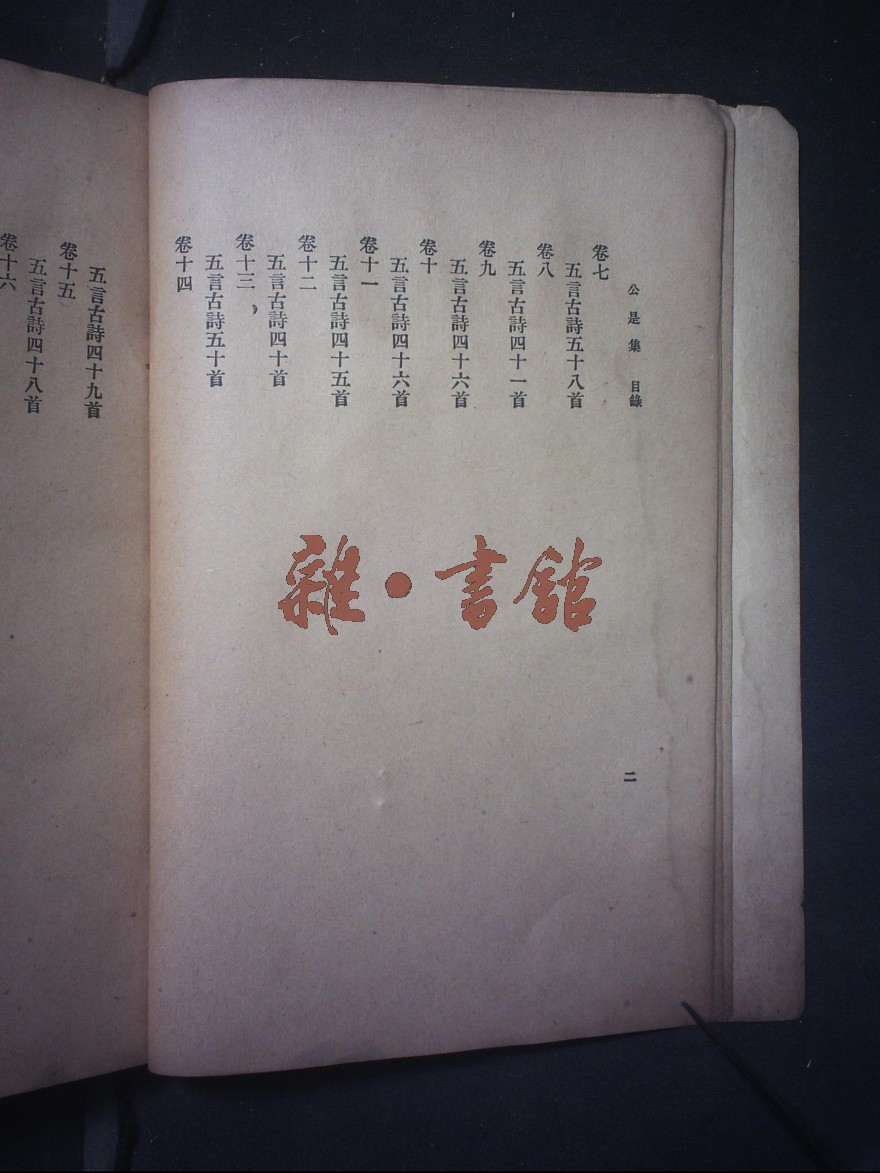 公是集 目錄
二
卷七
五言古詩五十八首
卷八
五言古詩四十一首
卷九
五言古詩四十六首
卷十
五言古詩四十六首
卷十一
五言古詩四十五首
卷十二
五言古詩四十首
卷十三
五言古詩五十首
卷十四
五言古詩四十九首
卷十五
五言古詩四十八首
卷十六
雜·書館